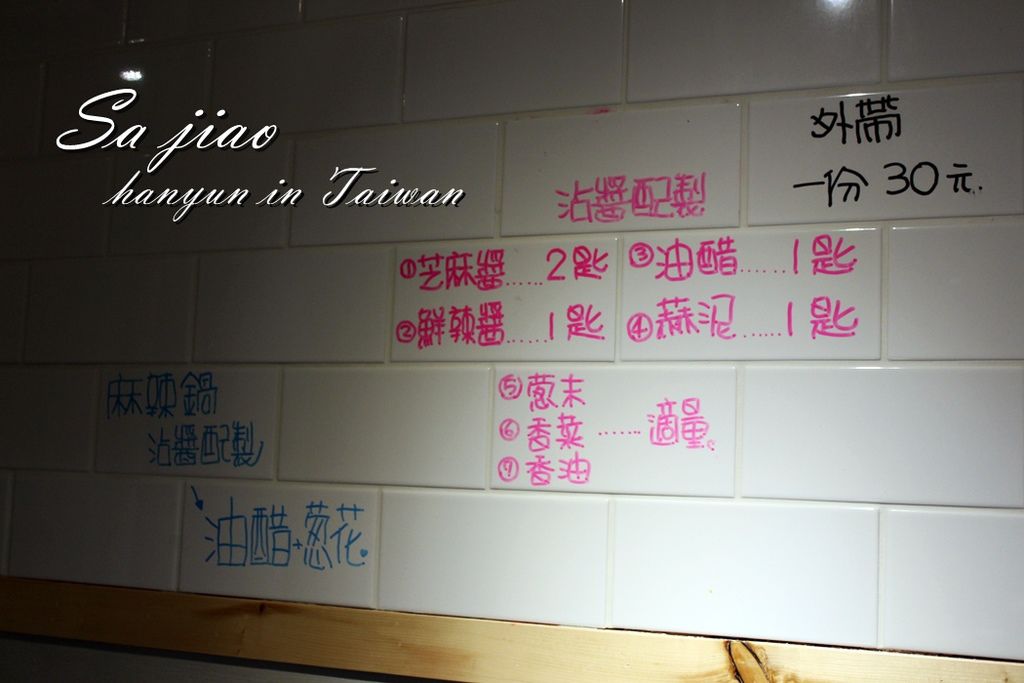 Sa jiao
hanyun in Taiwan
外帶
一份 30元.
沾醬配製
①芝麻醬......2匙
②鮮辣醬......1匙
③油醋......1匙
④蒜泥......1匙
⑤蔥末
⑥香菜......適量。
⑦香油
麻辣鍋
沾醬配製
油醋+蔥花。